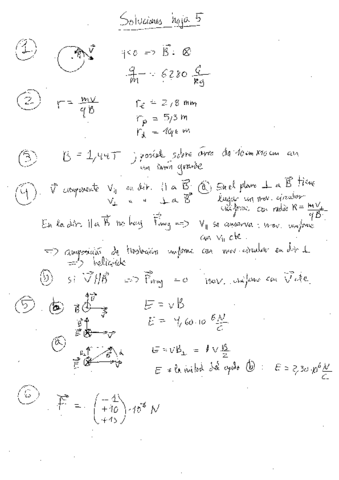 Soluciones hoja 5
1 V⃗ q<0 => B⃗: ⊗
q/m = 6280 C/Kg
2 r = mv/qB
r = 2,8 mm
r = 5,3 m
3 B = 1,44T ; posible sobre área de 10cm×10cm con un imán grande
4 V⃗ componente V∥ en dir. ∥ a B⃗. V⊥ " " ⊥ a B⃗
a En el plano ⊥ a B⃗ tiene lugar un mov. circular uniforme, con radio R = mv⊥/qB.
En la dir. ∥ a B⃗ no hay F⃗mag => V∥ se conserva: mov. uniforme con V∥ cte.
=> composición de traslación uniforme con mov. circular en dir ⊥
=> helicoide
b si V⃗ ∥ B⃗ => F⃗mag = 0 mov. uniforme con V⃗ cte.
5 b E = vB
E = 4,60·10⁶ N/C
a E = vB⊥ = vB/2
E = la mitad del b : E = 2,30·10⁶ N/C.
6 F⃗ = (-1 +10 +13) ·10⁻⁶ N